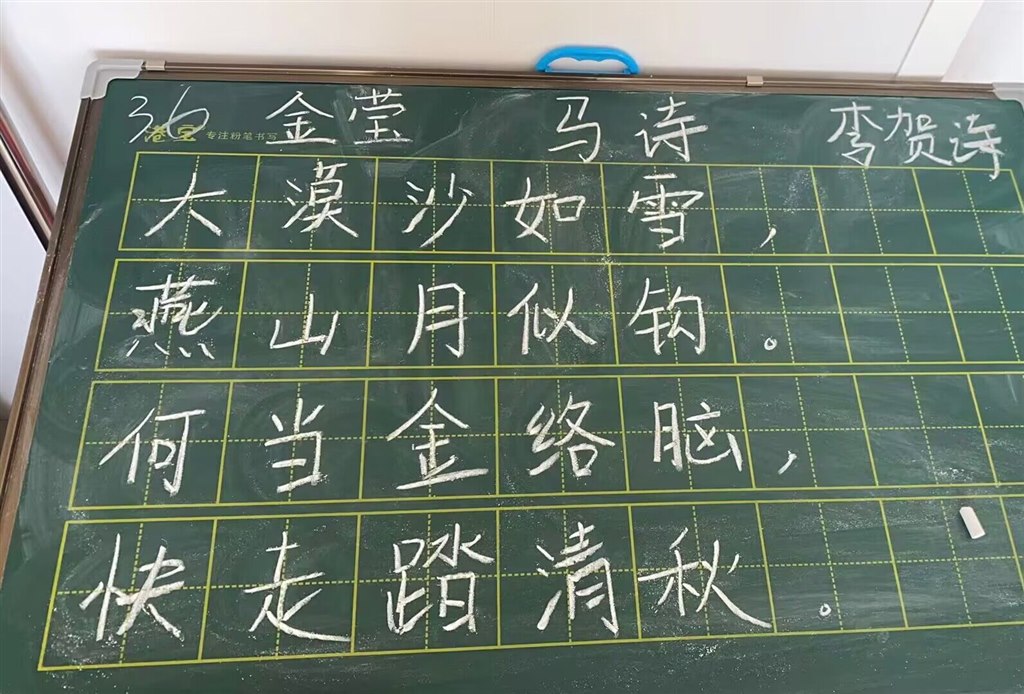 36 金莹 马诗 李贺诗
专注粉笔书写
大漠沙如雪，
燕山月似钩。
何当金络脑，
快走踏清秋。